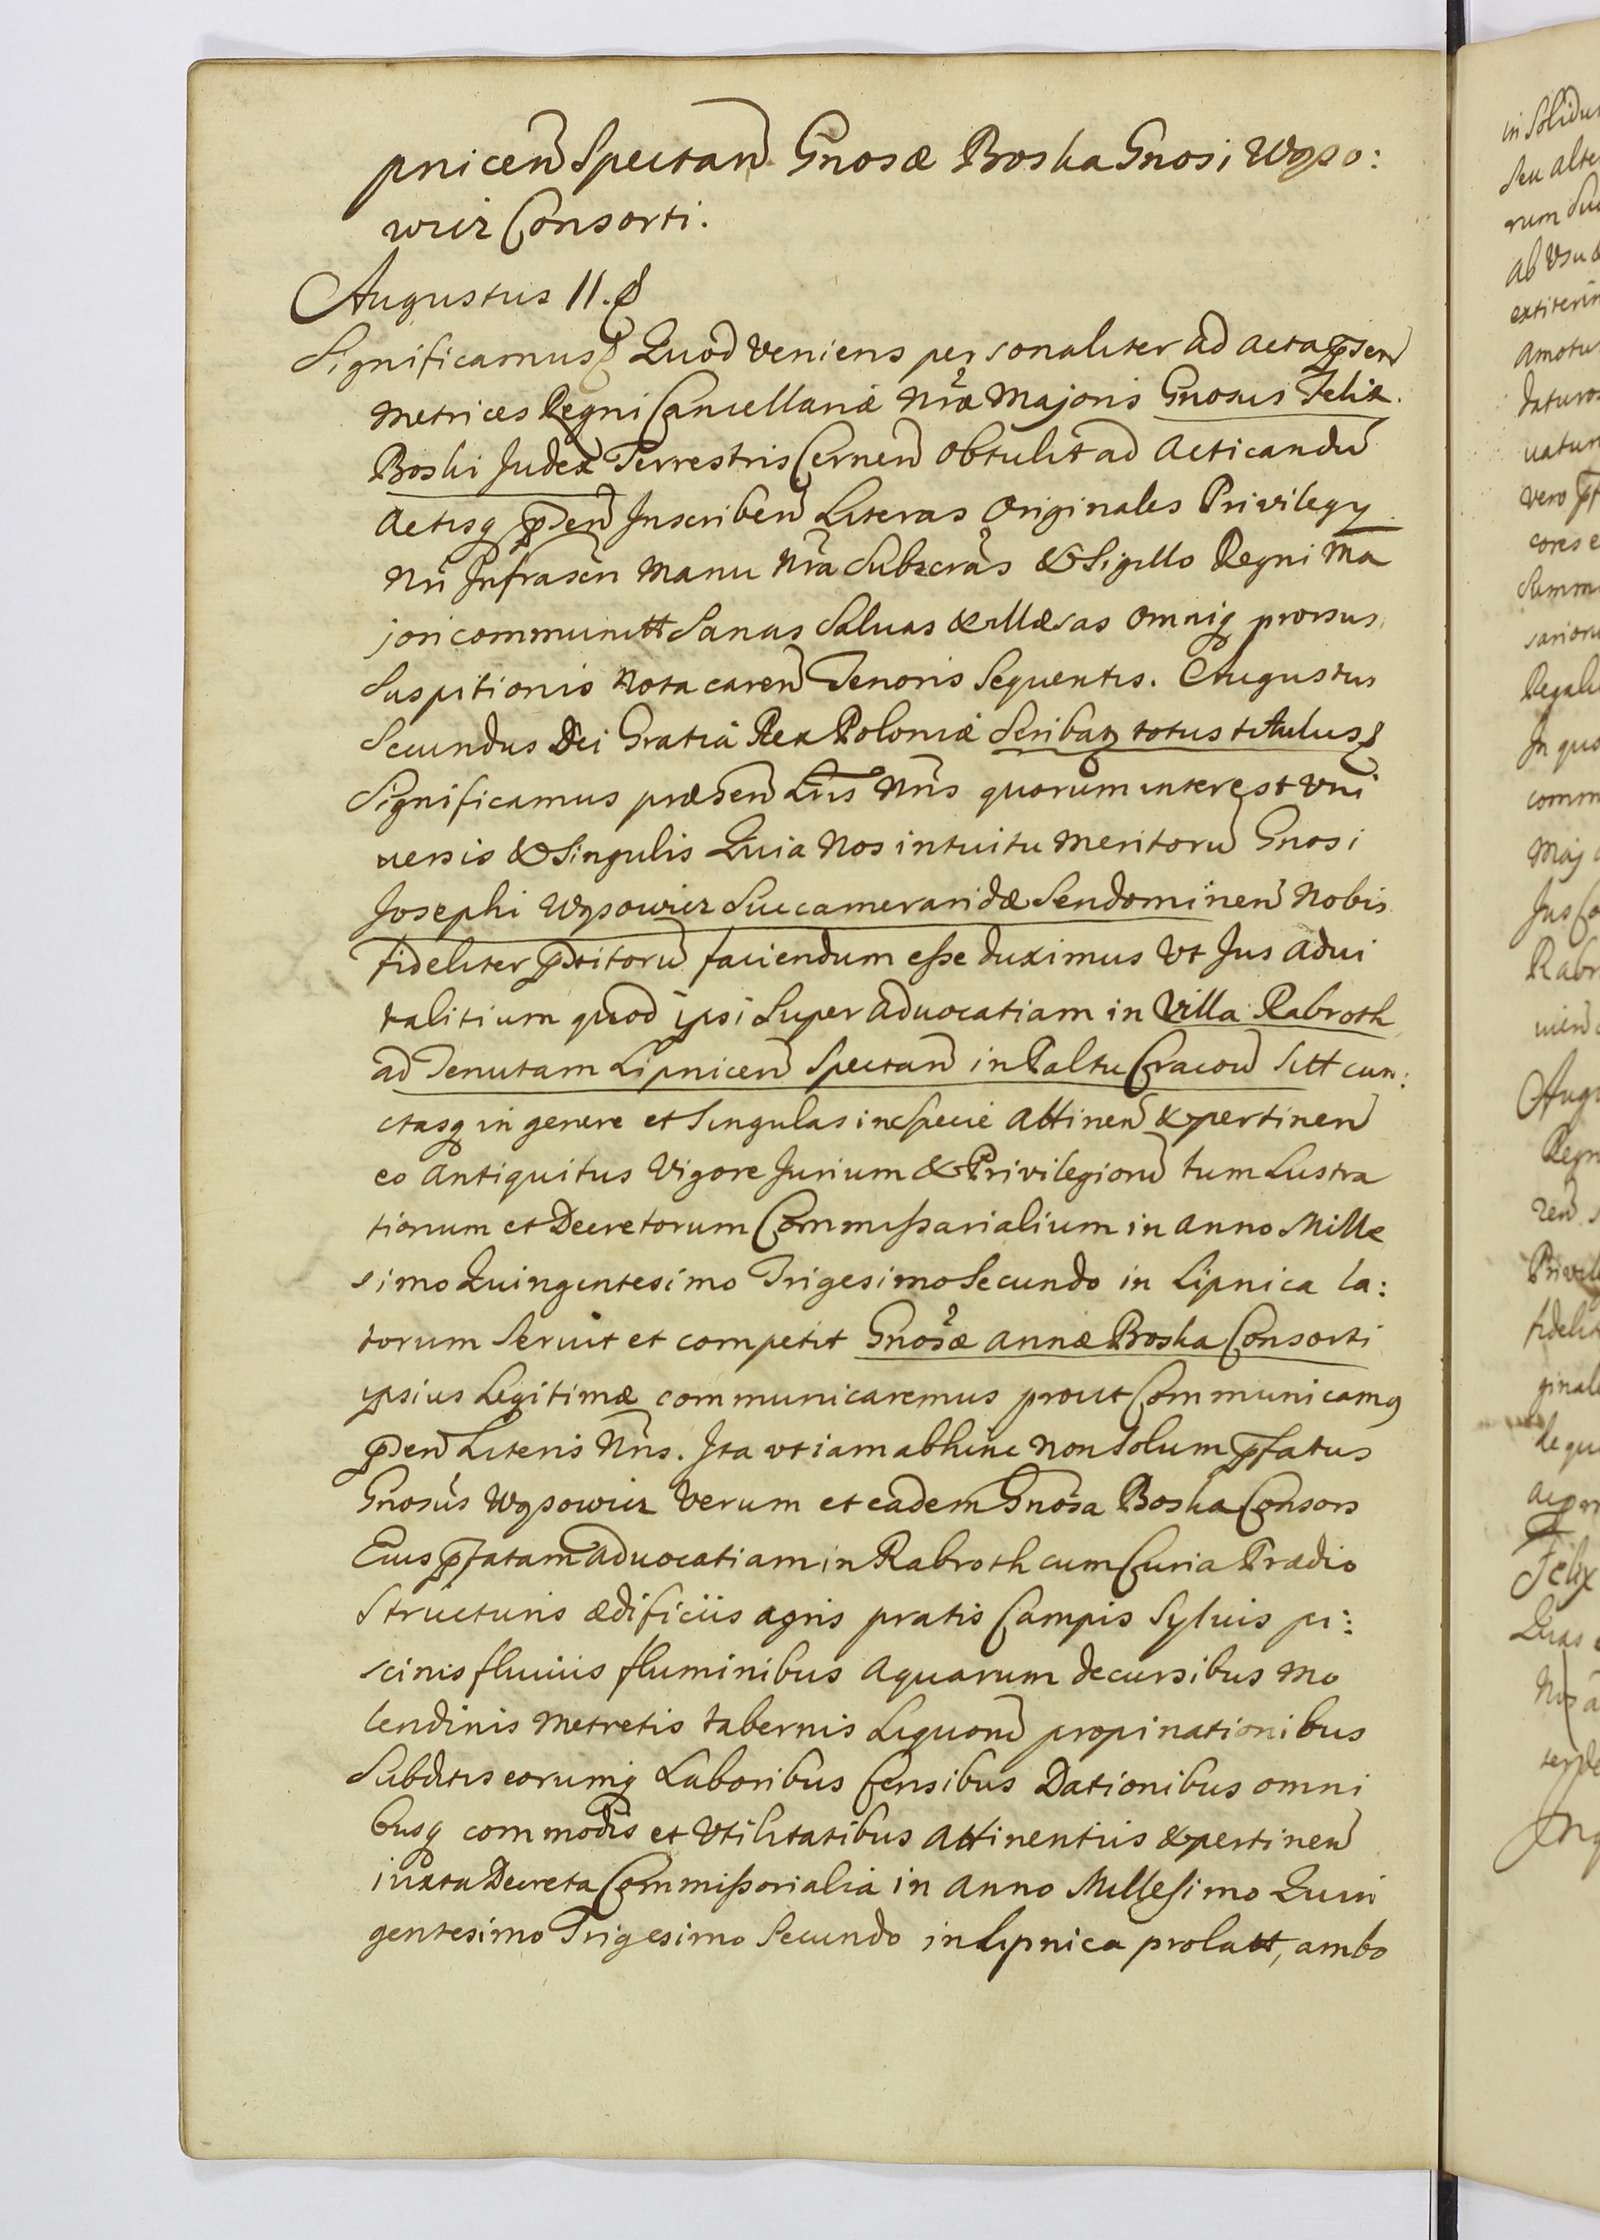 pnicen Spectan Gnosæ Boska Gnosi Wyso:
wicz Consorti.
Augustus II. &
Significamus & Quod veniens personaliter ad acta pñsen
Metrices Regni Cancellariæ Nræ Majoris Gnosus Felix
Boski Judex Terrestris Cernen obtulit ad Acticandu
Actisq pñsen Inscriben Literas Originales Privilegy
Nri Infrascri Manu Nra Subscras & Sigillo Regni Ma
jori communitt Sanas Saluas & illæsas omniq prorsus
Suspitionis Nota caren Tenoris Sequentis. Augustus
Secundus Dei Gratia Rex Poloniæ Scribatz totus titulus &
Significamus præsen Lris Nris quorum interest vni
uersis & Singulis Quia Nos intuitu Meritoru Gnosi
Josephi Wysowicz Succameraridæ Sendominen Nobis
fideliter pstitoru faciendum esse duximus Vt Jus adui
talitium quod ipsi Super aduocatiam in Villa Rabroth
ad Tenutam Lipnicen Spectan in Paltu Cracou Sitt cun:
ctasq in genere et Singulas in Specie attinen & pertinen
eo antiquitus Vigore Jurium & Privilegioru tum Lustra
tionum et Decretorum Commissarialium in anno Mille
simo Quingentesimo Trigesimo Secundo in Lipnica la:
torum Seruit et competit Gnosæ annæ Boska Consorti
ipsius Legitimæ communicaremus prout Communicamq
pñsen Literis Nris. Ita vt iam abhinc Non Solum pfatus
Gnosus Wysowicz Verum et eadem Gnosa Boska Consors
Eius pfatam aduocatiam in Rabroth cum Curia Prædio
Structuris ædificiis agris pratis Campis Syluis pi:
scinis fluuiis fluminibus aquarum decursibus Mo
lendinis Metretis tabernis Liquoru propinationibus
Subditis eorumq Laboribus Censibus Dationibus omni
busq commodis et Vtilitatibus attinentiis & pertinen
iuxta Decreta Commissorialia in anno Millesimo Quin
gentesimo Trigesimo Secundo in Lipnica prolatt, ambo